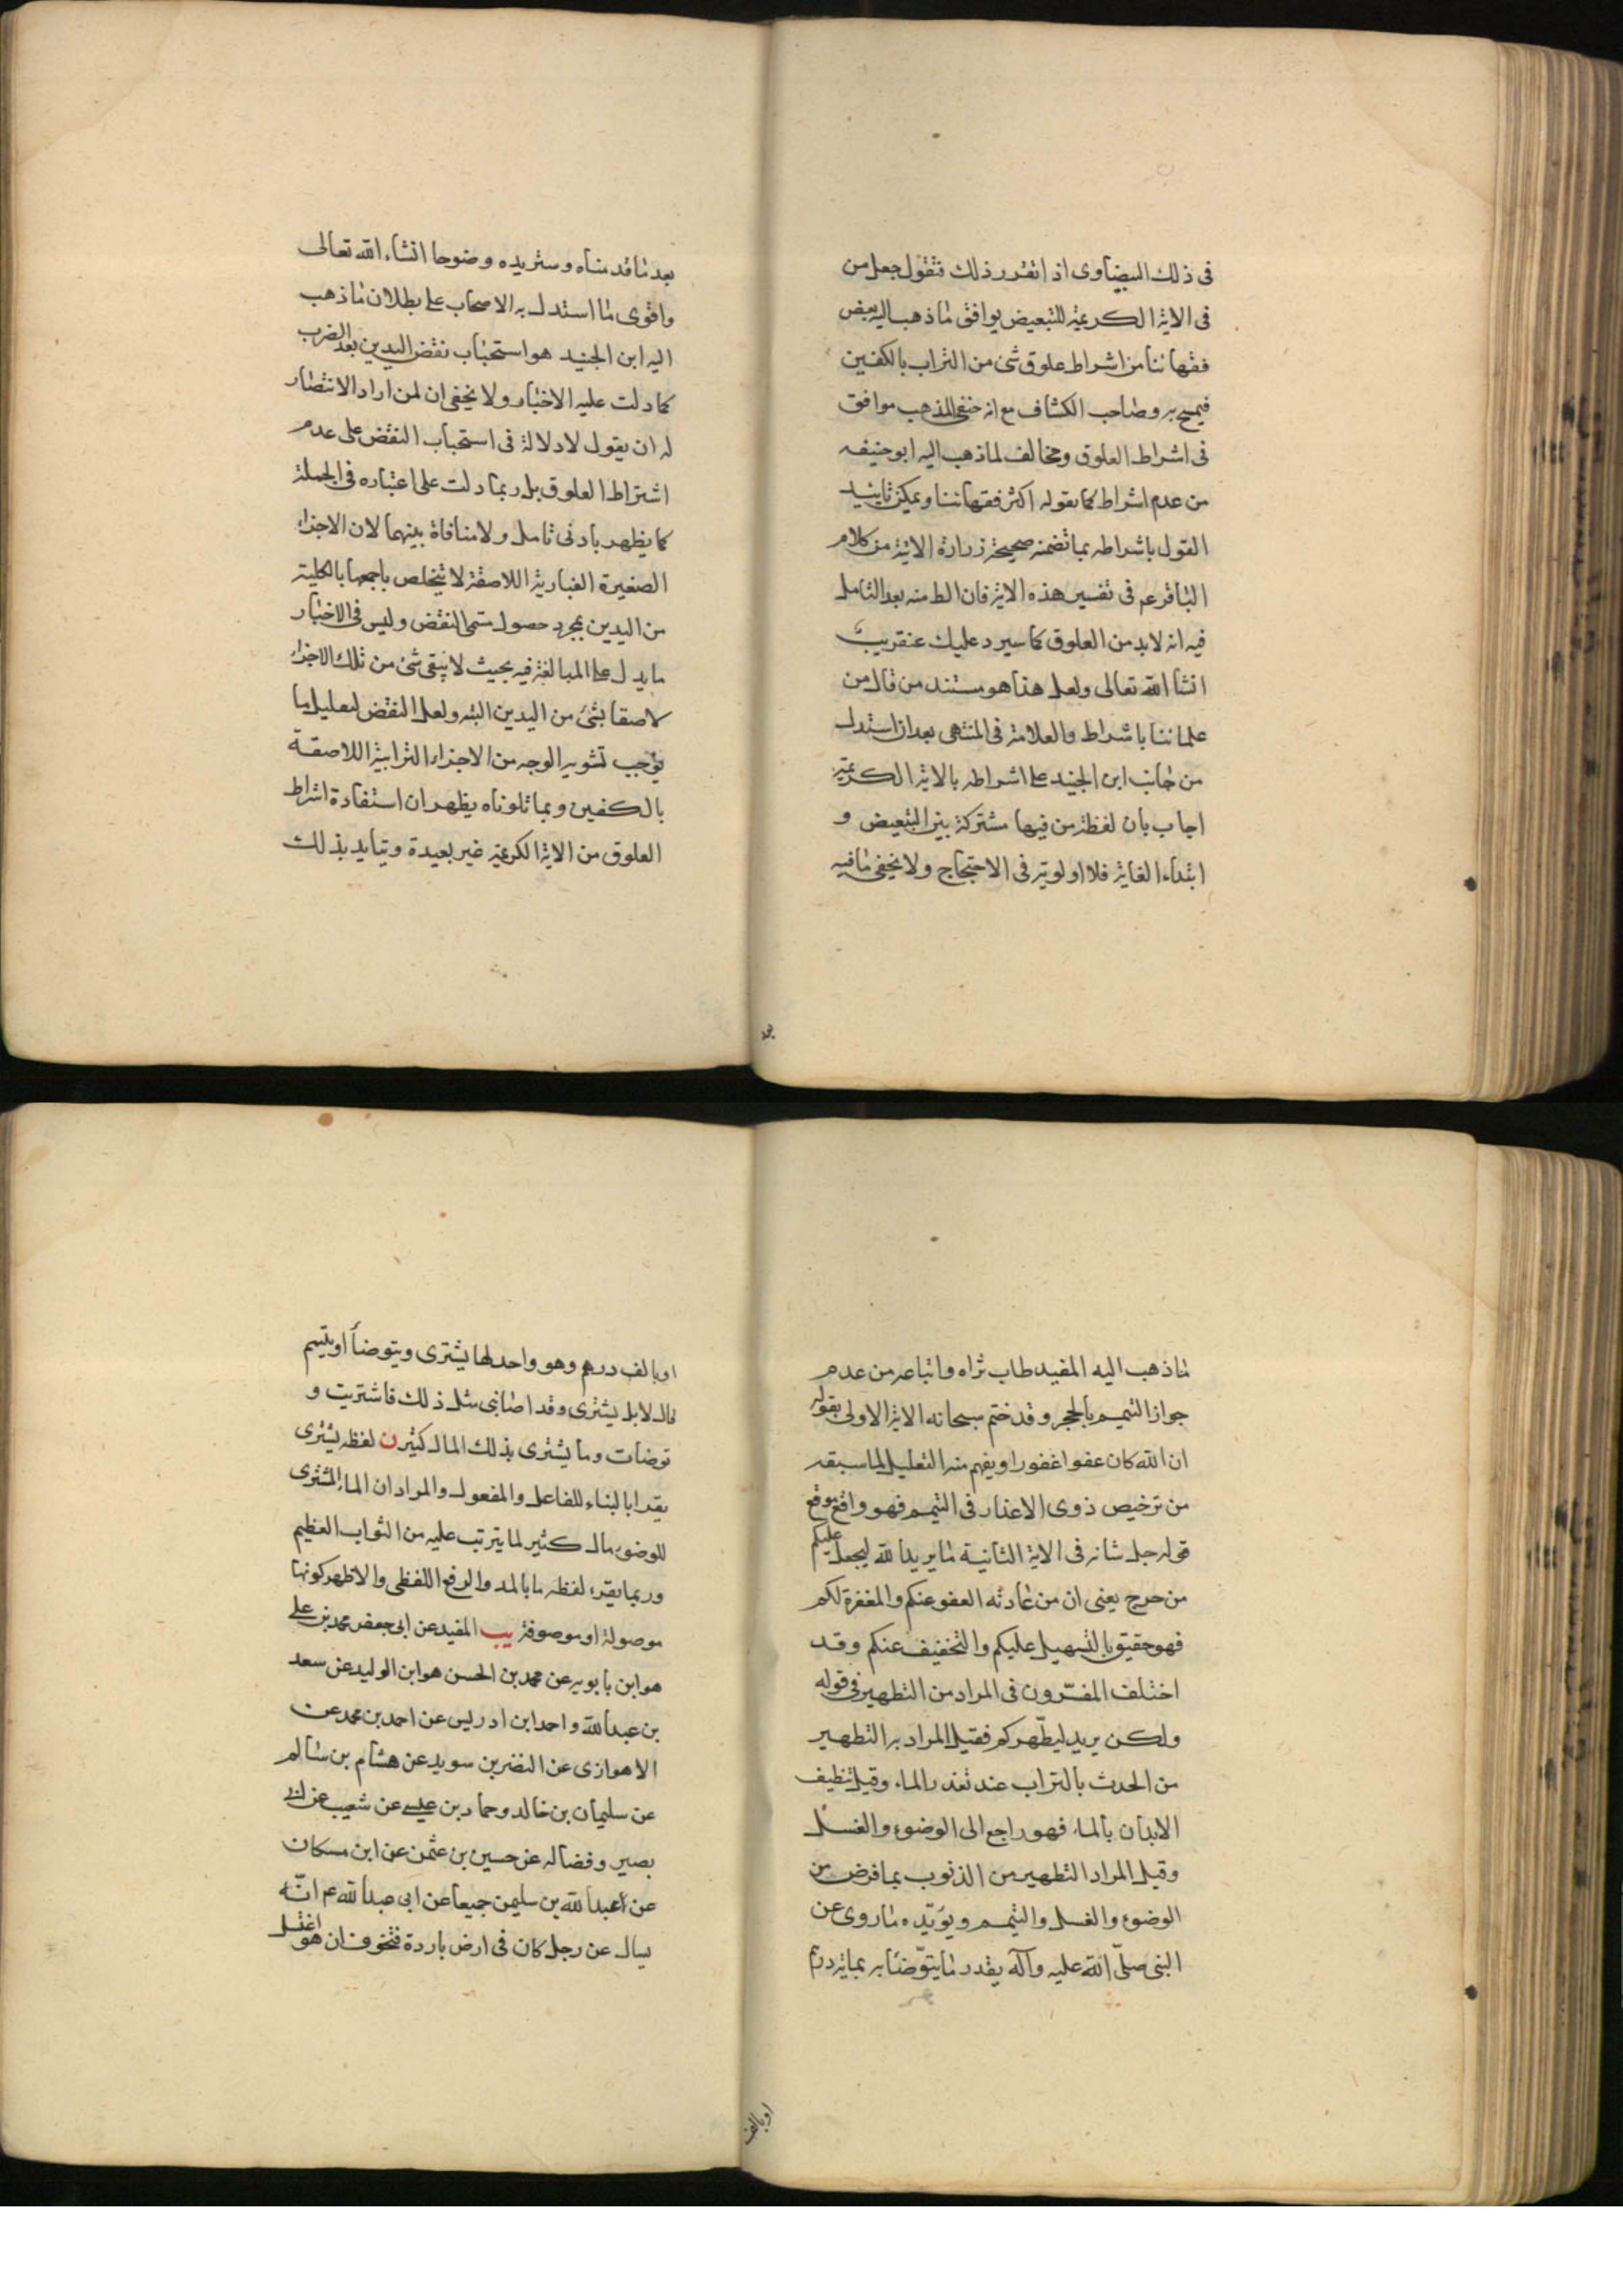 فى ذلك البيضاوى اذا تقرر ذلك فنقول جعل من
فى الاية الكريمة للتبعيض يوافق ما ذهب اليه بعض
فقهائنا من اشراط علوق شئ من التراب بالكفين
فيمسح به وصاحب الكشاف مع انه حنفى المذهب موافق
فى اشراط العلوق ومخالف لما ذهب اليه ابو حنيفه
من عدم اشراط كما يقوله اكثر فقهائنا ويمكن تاييد
القول باشراطه بما تضمنه صحيحة زرارة الاتية من كلام
الباقر عم فى تفسير هذه الاية فان الظ منه بعد التامل
فيه انه لابد من العلوق كما سيرد عليك عنقريب
انشا الله تعالى ولعل هذا هو مستند من قال من
علمائنا باشراط والعلامة فى المنتهى بعد ان استدل
من جانب ابن الجنيد على اشراطه بالاية الكريمة
اجاب بان لفظة من فيها مشتركة بين التبعيض و
ابتداء الغاية فلا اولوية فى الاحتجاج ولا يخفى ما فيه
بعد ما قدمناه وستزيده وضوحا انشاء الله تعالى
واقوى ما استدل به الاصحاب على بطلان ما ذهب
اليه ابن الجنيد هو استحباب نفض اليدين بعد الضرب
كما دلت عليه الاخبار ولا يخفى ان لمن اراد الانتصار
له ان يقول لا دلالة فى استحباب النفض على عدم
اشتراط العلوق بل ربما دلت على اعتباره فى الجملة
كما يظهر بادنى تامل ولا منافاة بينهما لان الاجزاء
الصغيرة الغبارية اللاصقة لا يتخلص باجمعها بالكلية
من اليدين بمجرد حصول مسمى النفض وليس فى الاخبار
ما يدل على المبالغة فيه بحيث لا يبقى شئ من تلك الاجزاء
لاصقا بشئ من اليدين البته ولعل النفض لتقليل ما
يوجب تشويه الوجه من الاجزاء الترابية اللاصقة
بالكفين وبما تلوناه يظهر ان استفادة اشراط
العلوق من الاية الكريمة غير بعيدة ويتايد بذلك
ما ذهب اليه المفيد طاب ثراه واتباعه من عدم
جواز التيمم بالحجر وقد ختم سبحانه الاية الاولى بقوله
ان الله كان عفوا غفورا ويفهم منه التعليل لما سبقه
من ترخيص ذوى الاعذار فى التيمم فهو واقع موقع
قوله جل شانه فى الاية الثانية ما يريد الله ليجعل عليكم
من حرج يعنى ان من عادته العفو عنكم والمغفرة لكم
فهو حقيق بالتسهيل عليكم والتخفيف عنكم وقد
اختلف المفسّرون فى المراد من التطهير فى قوله
ولكن يريد ليطّهركم فقيل المراد به التطهير
من الحدث بالتراب عند تعذر الماء وقيل تنظيف
الابدان بالماء فهو راجع الى الوضوء والغسل
وقيل المراد التطهير من الذنوب بما فرض من
الوضوء والغسل والتيمم ويؤيّده ما روى عن
النبى صلّى الله عليه وآله يقدر ما يتوّضأ به بماية درهم
اوبالف
اوبالف درهم وهو واحد لها يشترى ويتوضأ او يتيمم
قال لا بل يشترى وقد اصابنى مثل ذلك فاشتريت و
توضات وما يشترى بذلك المال كثير ن لفظه يشترى
يقرا بالبناء للفاعل والمفعول والمراد ان الماء المشترى
للوضوء مال كثير لما يترتب عليه من الثواب العظيم
وربما يقرء لفظه ما بالمد والرفع اللفظى والاظهر كونها
موصولة او موصوفة يب المفيد عن ابى جعفر محمد بن على
هو ابن بابويه عن محمد بن الحسن هو ابن الوليد عن سعد
بن عبد الله واحمد ابن ادريس عن احمد بن محمد عن
الاهوازى عن النضر بن سويد عن هشام بن سالم
عن سليمان بن خالد وحماد بن عيسى عن شعيب عن ابى
بصير وفضاله عن حسين بن عثمن عن ابن مسكان
عن عبد الله بن سليمن جميعا عن ابى عبد الله عم انّه
سال عن رجل كان فى ارض باردة فتخوف ان هو اغتسل